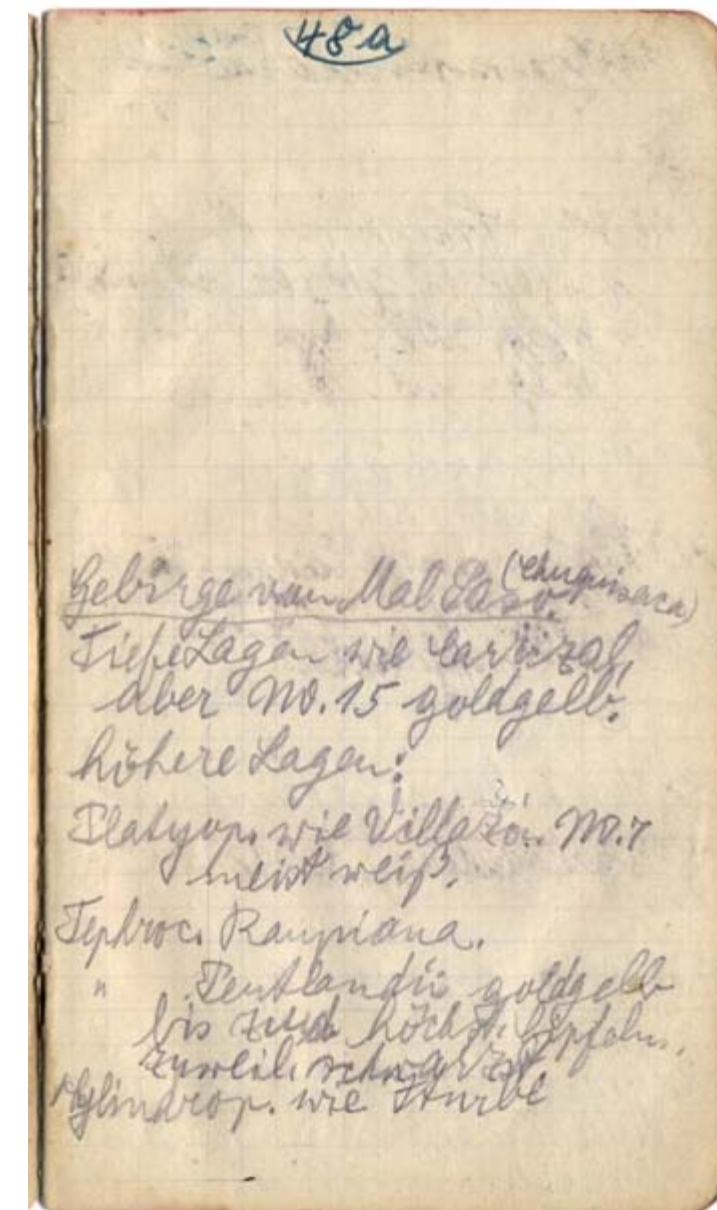 48a
Gebirge von Mal Paso. (Chuquisaca)
Tiefe Lagen wie Carrizal,
aber No. 15 goldgelb.
höhere Lagen:
Platyop. wie Villazón. No. 7
meist weiß.
Tephroc.
" Pentlandii goldgelb
bis zu höchst. Gipfeln,
zuweil. schwarz
Cylindrop. wie Iturbe